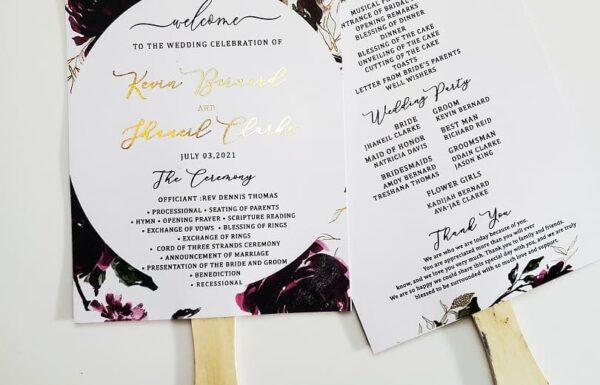 welcome
TO THE WEDDING CELEBRATION OF
Kevin Bernard
AND
Jhaneil Clarke
JULY 03,2021
The Ceremony
OFFICIANT :REV DENNIS THOMAS
• PROCESSIONAL • SEATING OF PARENTS
• HYMN • OPENING PRAYER • SCRIPTURE READING
• EXCHANGE OF VOWS • BLESSING OF RINGS
• EXCHANGE OF RINGS
• CORD OF THREE STRANDS CEREMONY
• ANNOUNCEMENT OF MARRIAGE
• PRESENTATION OF THE BRIDE AND GROOM
• BENEDICTION
• RECESSIONAL
MUSICAL
ENTRANCE OF BRIDAL
OPENING REMARKS
BLESSING OF DINNER
DINNER
BLESSING OF THE CAKE
UNVEILING OF THE CAKE
CUTTING OF THE CAKE
TOASTS
LETTER FROM BRIDE'S PARENTS
WELL WISHERS
Wedding Party
BRIDE
JHANEIL CLARKE
GROOM
KEVIN BERNARD
MAID OF HONOR
NATRICIA DAVIS
BEST MAN
RICHARD REID
BRIDESMAIDS
AMOY BERNARD
TRESHANA THOMAS
GROOMSMAN
ODAIN CLARKE
JASON KING
FLOWER GIRLS
KADIJAH BERNARD
AVA-JAE CLARKE
Thank You
We are who we are today because of you.
You are appreciated more than you will ever
know, and we love you very much. Thank you to family and friends.
We are so happy we could share this special day with you, and we are truly
blessed to be surrounded with so much love and support.